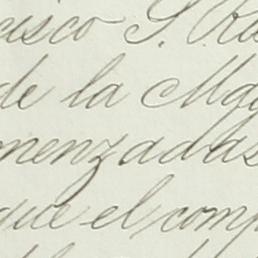 cisco S. Ra
de la Ma
menzadas
que el comp